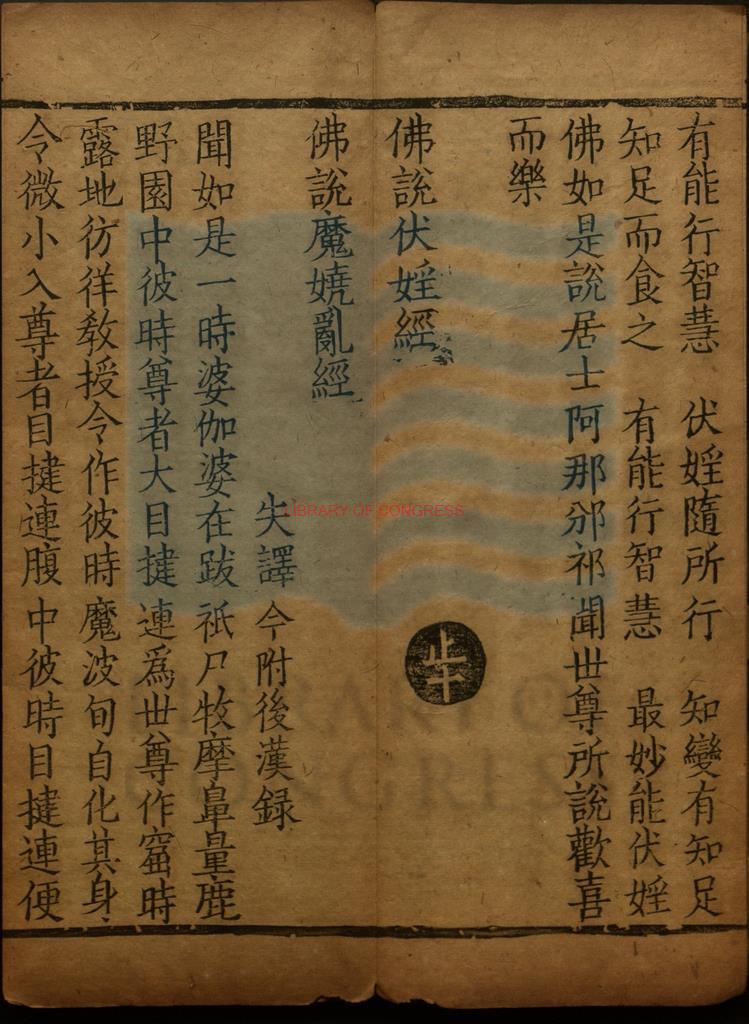 有能行智慧　伏婬隨所行　知變有知足
知足而食之　有能行智慧　最妙能伏婬
佛如是說居士阿那邠祁聞世尊所說歡喜
而樂
佛說伏婬經
止十
佛說魔嬈亂經
失譯今附後漢録
聞如是一時婆伽婆在跋祇尸牧摩鼻量鹿
野園中彼時尊者大目揵連爲世尊作窟時
露地彷徉教授令作彼時魔波旬自化其身
令微小入尊者目揵連腹中彼時目揵連便
LIBRARY OF CONGRESS